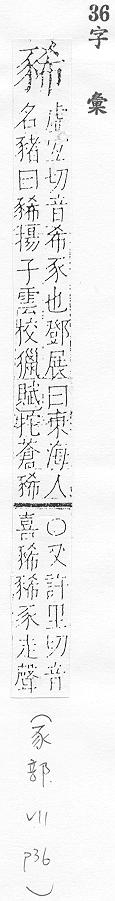 36
字 彙
豨
虛宜切音希豕也鄧展曰東海人
名豬曰豨揚子雲校獵賦拕蒼豨
○又許里切音
喜豨豨豕走聲
(豕部 VII p36)